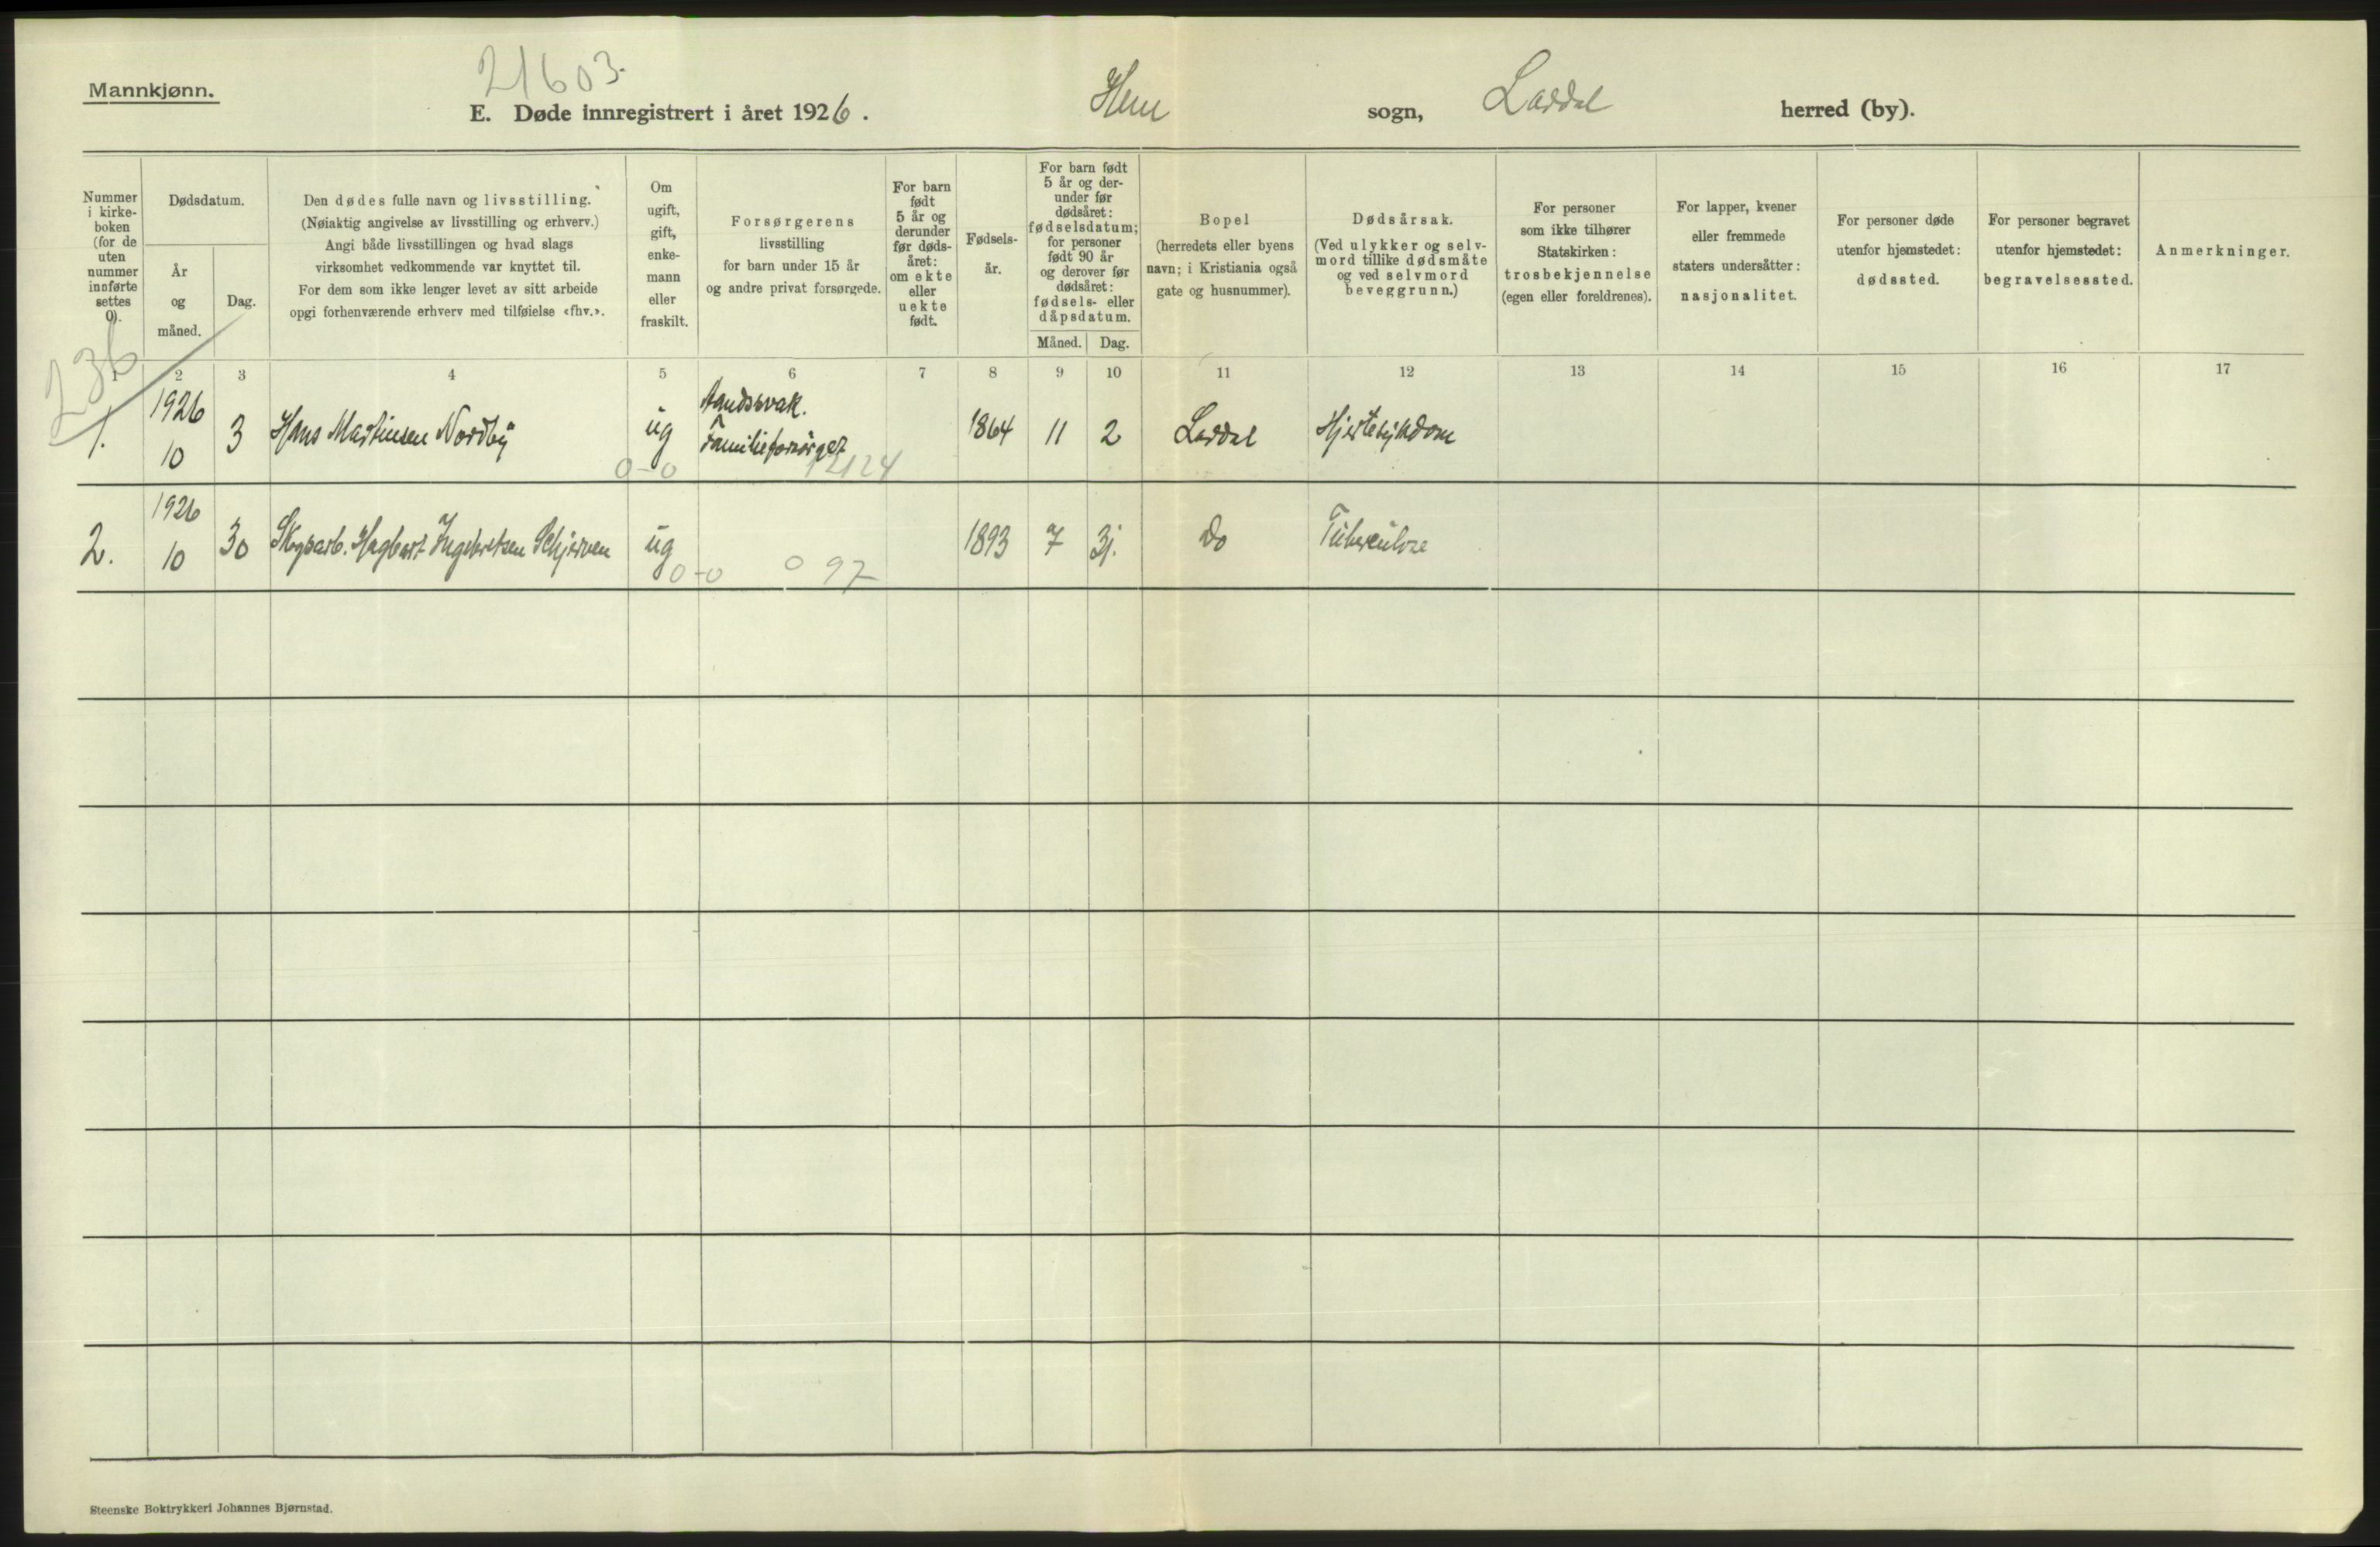 Mannkjønn.
21603.
E. Døde innregistrert i året 1926. Hem sogn, Lardal herred (by).
Nummer i kirke-boken (for de uten nummer innførte settes 0).
Dødsdatum.
År og måned.
Dag.
Den dødes fulle navn og livsstilling.
(Nøiaktig angivelse av livsstilling og erhverv.)
Angi både livsstillingen og hvad slags
virksomhet vedkommende var knyttet til.
For dem som ikke lenger levet av sitt arbeide
opgi forhenværende erhverv med tilføielse «fhv.».
Om
ugift,
gift,
enke-
mann
eller
fraskilt.
Forsørgerens
livsstilling
for barn under 15 år
og andre privat forsørgede.
For barn
født
5 år og
derunder
før døds-
året:
om ekte
eller
uekte
født.
Fødsels-
år.
For barn født
5 år og der-
under før
dødsåret:
fødselsdatum;
for personer
født 90 år
og derover før
dødsåret:
fødsels- eller
dåpsdatum.
Måned. Dag.
Bopel
(herredets eller byens
navn; i Kristiania også
gate og husnummer).
Dødsårsak.
(Ved ulykker og selv-
mord tillike dødsmåte
og ved selvmord
beveggrunn.)
For personer
som ikke tilhører
Statskirken:
trosbekjennelse
(egen eller foreldrenes).
For lapper, kvener
eller fremmede
staters undersåtter:
nasjonalitet.
For personer døde
utenfor hjemstedet:
dødssted.
For personer begravet
utenfor hjemstedet:
begravelsessted.
Anmerkninger.
236
1 2 3 4 5 6 7 8 9 10 11 12 13 14 15 16 17
1. 1926 10 3 Hans Martinsen Nordby ug Aandssvak. Familieforsørget 1864 11 2 Lardal Hjertesykdom
0-0 12124
2. 1926 10 30 Skogsarb. Hagbart Ingebretsen Schjerven ug 1893 7 31. Do Tuberculose
0-0 0 97
Steenske Boktrykkeri Johannes Bjørnstad.